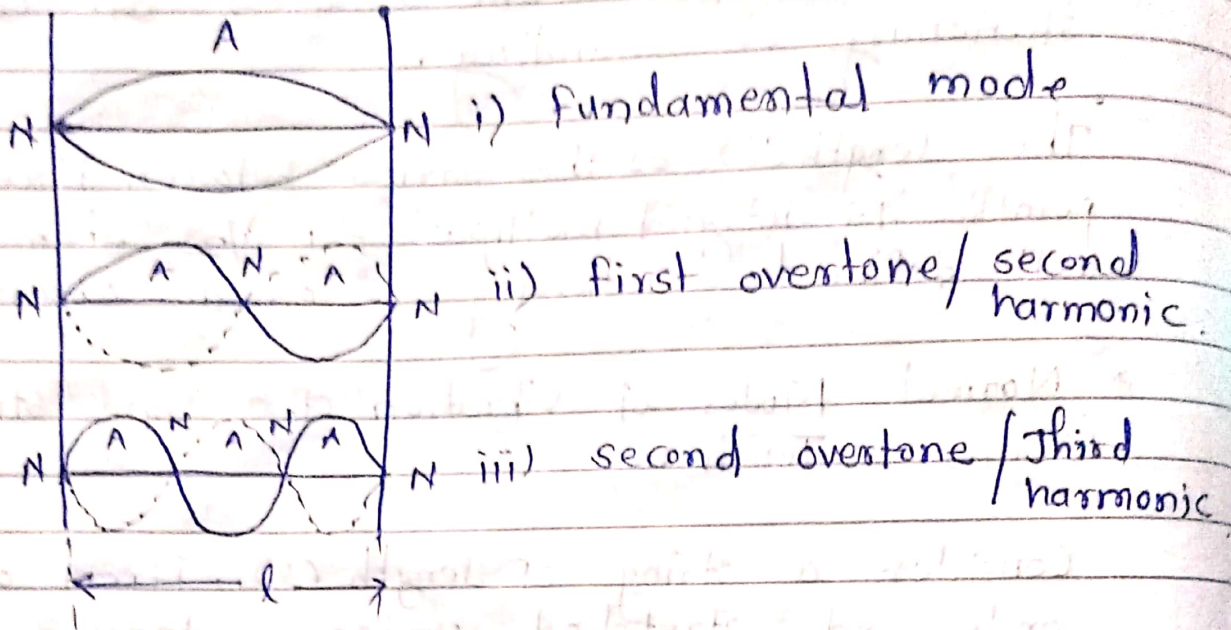 A
N N i) fundamental mode.
N A N A N ii) first overtone/ second
harmonic.
N A N A N A N iii) second overtone / Third
harmonic
l